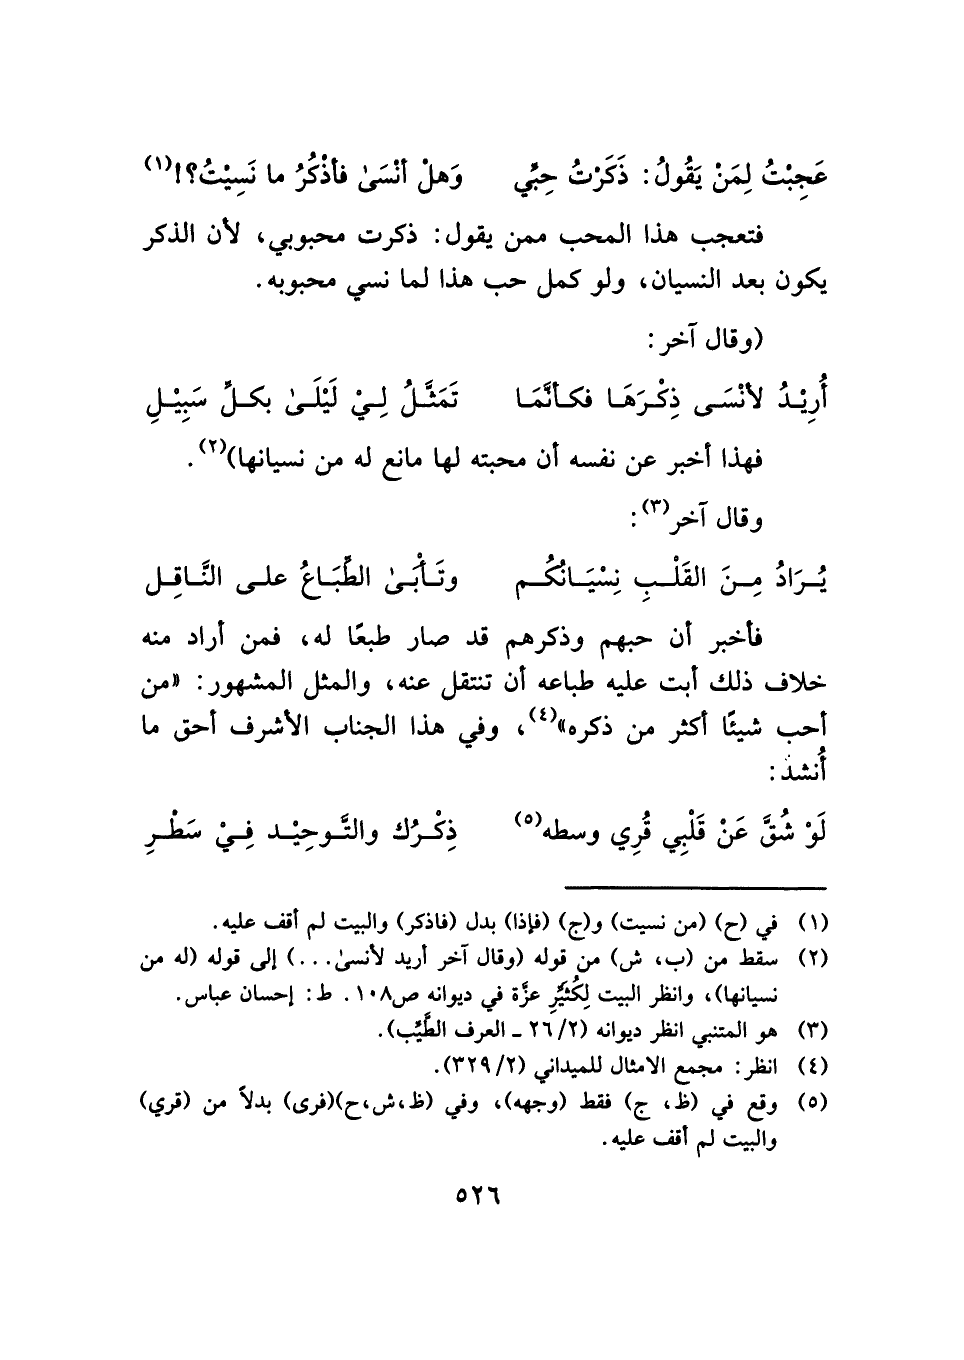 عَجِبْتُ لِمَنْ يَقُولُ: ذَكَرْتُ حِبِّي وَهلْ أنْسَىٰ فأذْكُرُ ما نَسِيْتُ؟!(١)
فتعجب هذا المحب ممن يقول: ذكرت محبوبي، لأن الذكر
يكون بعد النسيان، ولو كمل حب هذا لما نسي محبوبه.
(وقال آخر:
أُرِيْدُ لأنْسَى ذِكْرَهَا فكأنَّمَا تَمَثَّلُ لِيْ لَيْلَىٰ بكلِّ سَبِيْلِ
فهذا أخبر عن نفسه أن محبته لها مانع له من نسيانها)(٢).
وقال آخر(٣):
يُرَادُ مِنَ القَلْبِ نِسْيَانُكُم وتَأْبَىٰ الطِّبَاعُ على النَّاقِل
فأخبر أن حبهم وذكرهم قد صار طبعًا له، فمن أراد منه
خلاف ذلك أبت عليه طباعه أن تنتقل عنه، والمثل المشهور: «من
أحب شيئًا أكثر من ذكره»(٤)، وفي هذا الجناب الأشرف أحق ما
أُنشد:
لَوْ شُقَّ عَنْ قَلْبِي قُرِي وسطه(٥) ذِكْرُك والتَّوحِيْد فِيْ سَطْرِ
(١) في (ح) (من نسيت) و(ج) (فإذا) بدل (فاذكر) والبيت لم أقف عليه.
(٢) سقط من (ب، ش) من قوله (وقال آخر أريد لأنسىٰ...) إلى قوله (له من
نسيانها)، وانظر البيت لِكُثَيِّرِ عزَّة في ديوانه ص١٠٨. ط: إحسان عباس.
(٣) هو المتنبي انظر ديوانه (٢٦/٢ ـ العرف الطَّيِّب).
(٤) انظر: مجمع الامثال للميداني (٣٢٩/٢).
(٥) وقع في (ظ، ج) فقط (وجهه)، وفي (ظ،ش،ح)(فرى) بدلاً من (قري)
والبيت لم أقف عليه.
٥٢٦